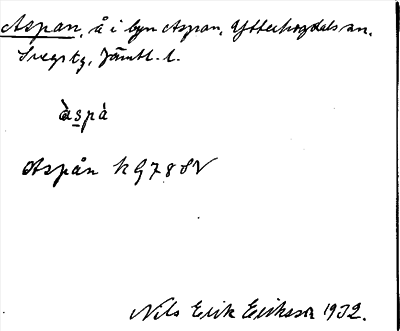 Aspan, å i byn Aspan, Ytterhogdals sn,
Svegs tg, Jämtl. l.
àspà
Aspån KG 78 SV
Nils Erik Eriksson 1932.